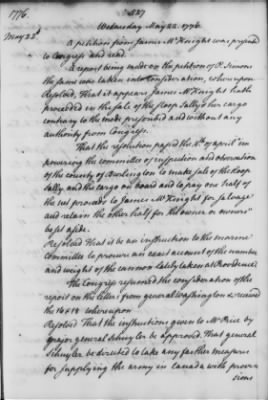 1776.
527
Wednesday May 22. 1776
May 22d
A petition from James McKnight was presented
to Congress and read.
A report being made on the petition of P. Simons
the same was taken into consideration, whereupon
Resolved, That it appears James McKnight hath
proceeded in the sale of the sloop Sally & her cargo
contrary to the mode prescribed and without any
authority from Congress.
That the resolution passed the 4th of april em
powering the committee of inspection and observation
of the county of Burlington to make sale of the sloop
Sally, and the cargo on board and to pay one half of
the net proceeds to James McKnight for salvage
and retain the other half for the owner or owners
be set aside.
Resolved That it be an instruction to the marine
Committee to procure an exact account of the number
and weight of the cannon lately taken at Providence.
The Congress resumed the consideration of the
report on the letters from general Washington &c received
the 16 & 18 whereupon
Resolved That the instructions given to Mr Price by
major general Schuyler be approved. That general
Schuyler be directed to take any farther measures
for supplying the army in Canada with provi
sions